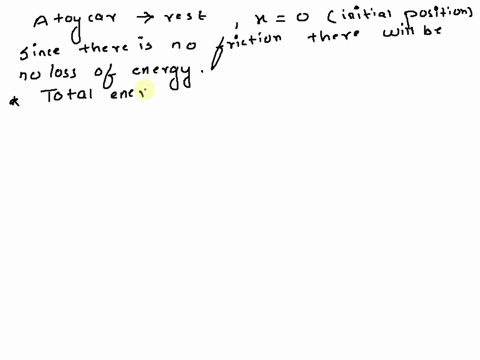 A toy car → rest , x = 0 (initial position)
Since there is no friction there will be
no loss of energy.
* Total ener